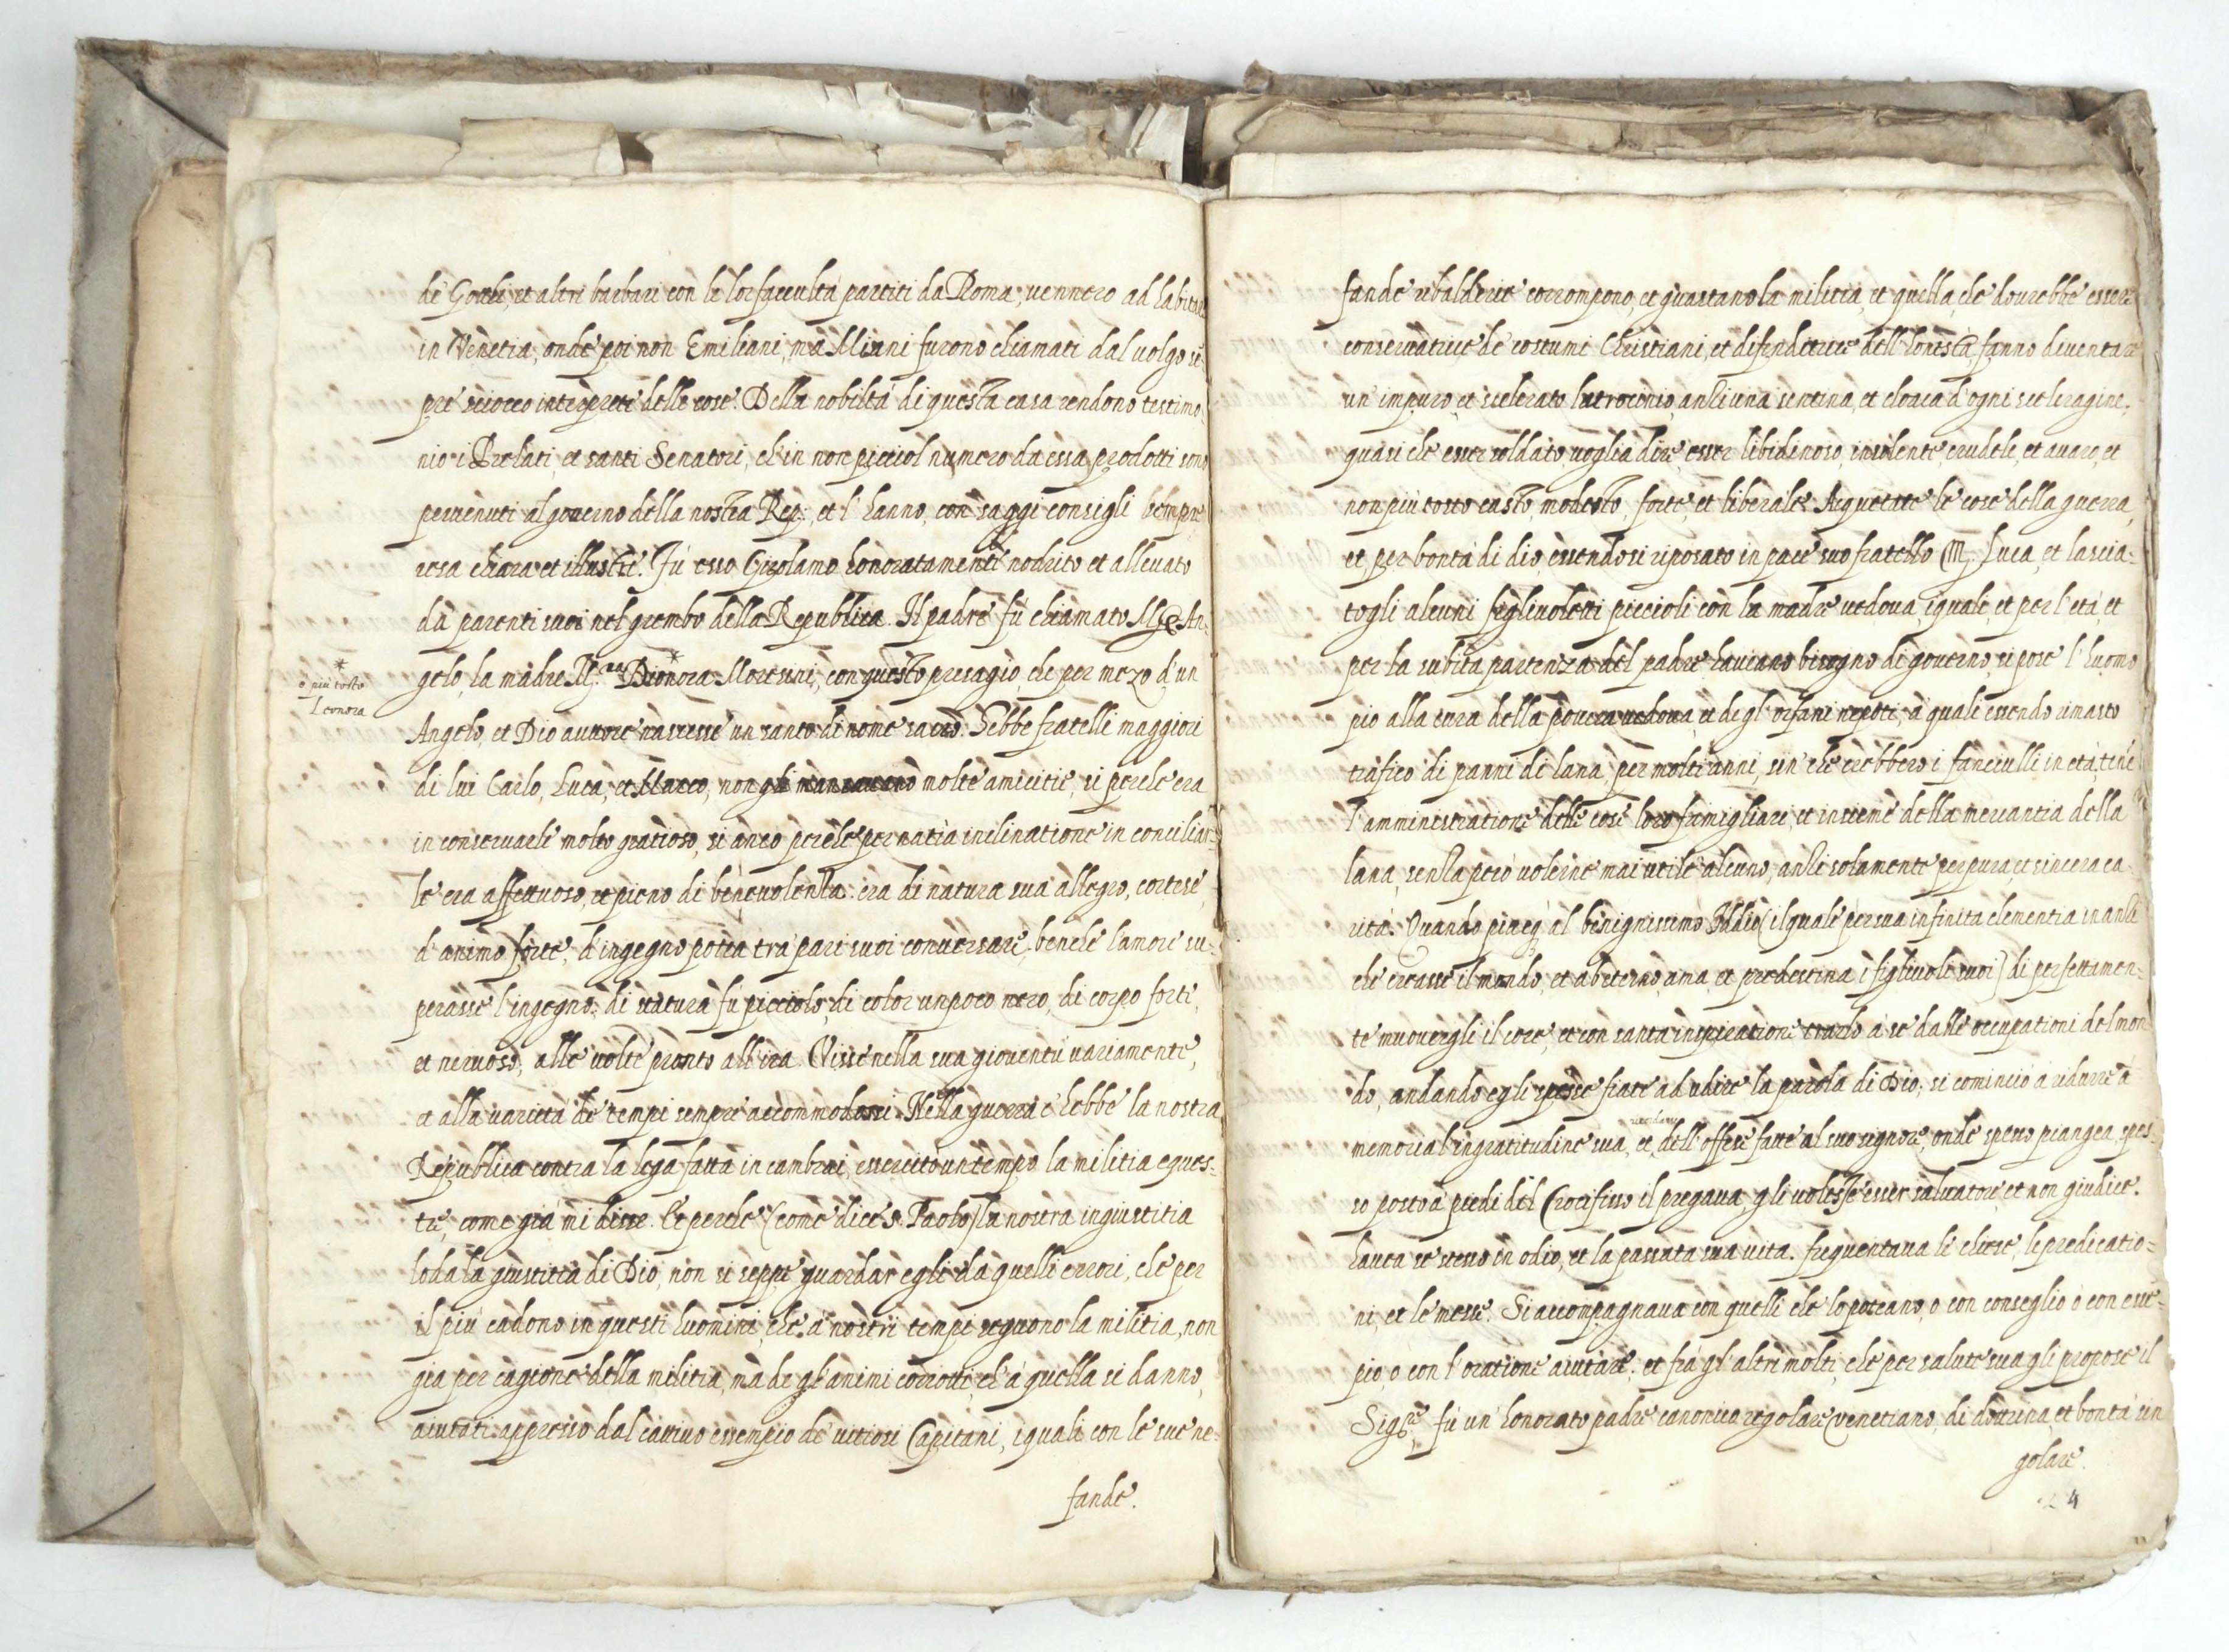 de Gothi, et altri barbari con le lor faccultà partiti da Roma, vennero ad habitare
in Venetia, onde poi non Emiliani, mà Miani furono chiamati dal volgo sẽ
pre sciocco interprete delle cose. Della nobiltà di questa casa rendono testimo
nio i Prelati, et santi Senatori, ch'in non picciol numero da essa prodotti sono
pervenuti al governo della nostra Rep. et l'hanno con saggi consigli sempre
resa chiara et illustre. Fù esso Girolamo honoratamente nodrito et allevato
dà parenti suoi nel grembo della Republica. Il padre fù chiamato M. An
gelo, la madre M.na Dionora* Moresini, con questo presagio, che per mezo d'un
* ò più tosto
Leonora
Angelo, et Dio auttore nascesse un santo di nome sacro. Hebbe fratelli maggiori
di lui Carlo, Luca, et Marco, non gli mancarono molte amicitie, si perche era
in conservarle molto gratioso, si anco perche per natia inclinatione in conciliar-
le era affettuoso, et pieno di benevolenza: era di natura sua allegro, cortese,
d'animo forte, d'ingegno potea trà pari suoi conversare, benche l'amore su-
perasse l'ingegno: di statura fù picciolo, di color un poco nero, di corpo forte,
et nervoso, alle volte pronto all'ira. Visse nella sua gioventù variamente,
et alla varietà de tempi sempre accommodossi. Nella guerra c'hebbe la nostra
Republica contra la lega fatta in cambrai, essercitò un tempo la militia eques-
tre, come già mi disse. Et perche (come dice s. Paolo) la nostra ingiustitia
loda la giustitia di Dio, non si seppe guardar egli da quelli errori, che per
il più cadono in questi huomini, che à nostri tempi seguono la militia, non
già per cagione della militia, mà de gl'animi corrotti, ch'à quella si danno,
aiutati appresso dal cattivo essempio de vitiosi Capitani, i quali con le sue ne-
fande.
fande ribalderie corrompono, et guastano la militia, et quella, che dovrebbe essere
conservatrice de costumi Christiani, et difenditrice dell'honestà, fanno diventare
un'impuro, et scelerato latrocinio, anzi una sentina, et cloaca d'ogni sceleragine,
quasi che esser soldato voglia dire esser libidinoso, insolente, crudele, et avaro, et
non più tosto casto, modesto, forte, et liberale. Aquetate le cose della guerra,
et per bontà di dio, essendosi riposato in pace suo fratello M. Luca, et lascia-
togli alcuni figlivoletti piccioli con la madre vedova, i quali, et per l'età, et
per la subita partenza del padre haveano bisogno di governo, si pose l'huomo
pio alla cura della povera vedova, et degl'orfani nepoti, à quali essendo rimasto
trafico di panni di lana, per molti anni, sin che crebbero i fanciulli in età, tenè
l'amministratione delle cose loro famigliari, et insieme della mercantia della
lana, senza però volerne mai utile alcuno, anzi solamente per pura, et sincera ca-
rità. Quando piacq; al benignissimo Iddio (il quale per sua infinita clementia inanzi
che creasse il mondo, et ab eterno, ama, et predestina i figlivoli suoi) di perfettamen-
te muovergli il core, et con santa inspiratione trarlo à se dalle occupationi del mon
do, andando egli spesse fiate ad udire la parola di Dio, si cominciò à ridurre à
memoria l'ingratitudine sua, et dell'offese fatte al suo signore, onde spesso piangea, spes-
so posto à piedi del Crocifisso il pregava, gli volesse esser salvatore, et non giudice.
havea se stesso in odio, et la passata sua vita. frequentava le chiese, le predicatio-
ni, et le messe. Si accompagnava con quelli che lo poteano, o con conseglio o con essẽ-
pio, o con l'oratione aiutare. et frà gl'altri molti, che per salute sua gli propose il
Sig.re, fù un' honorato padre canonico regolare venetiano, di dottrina, et bontà sin
golare.
24